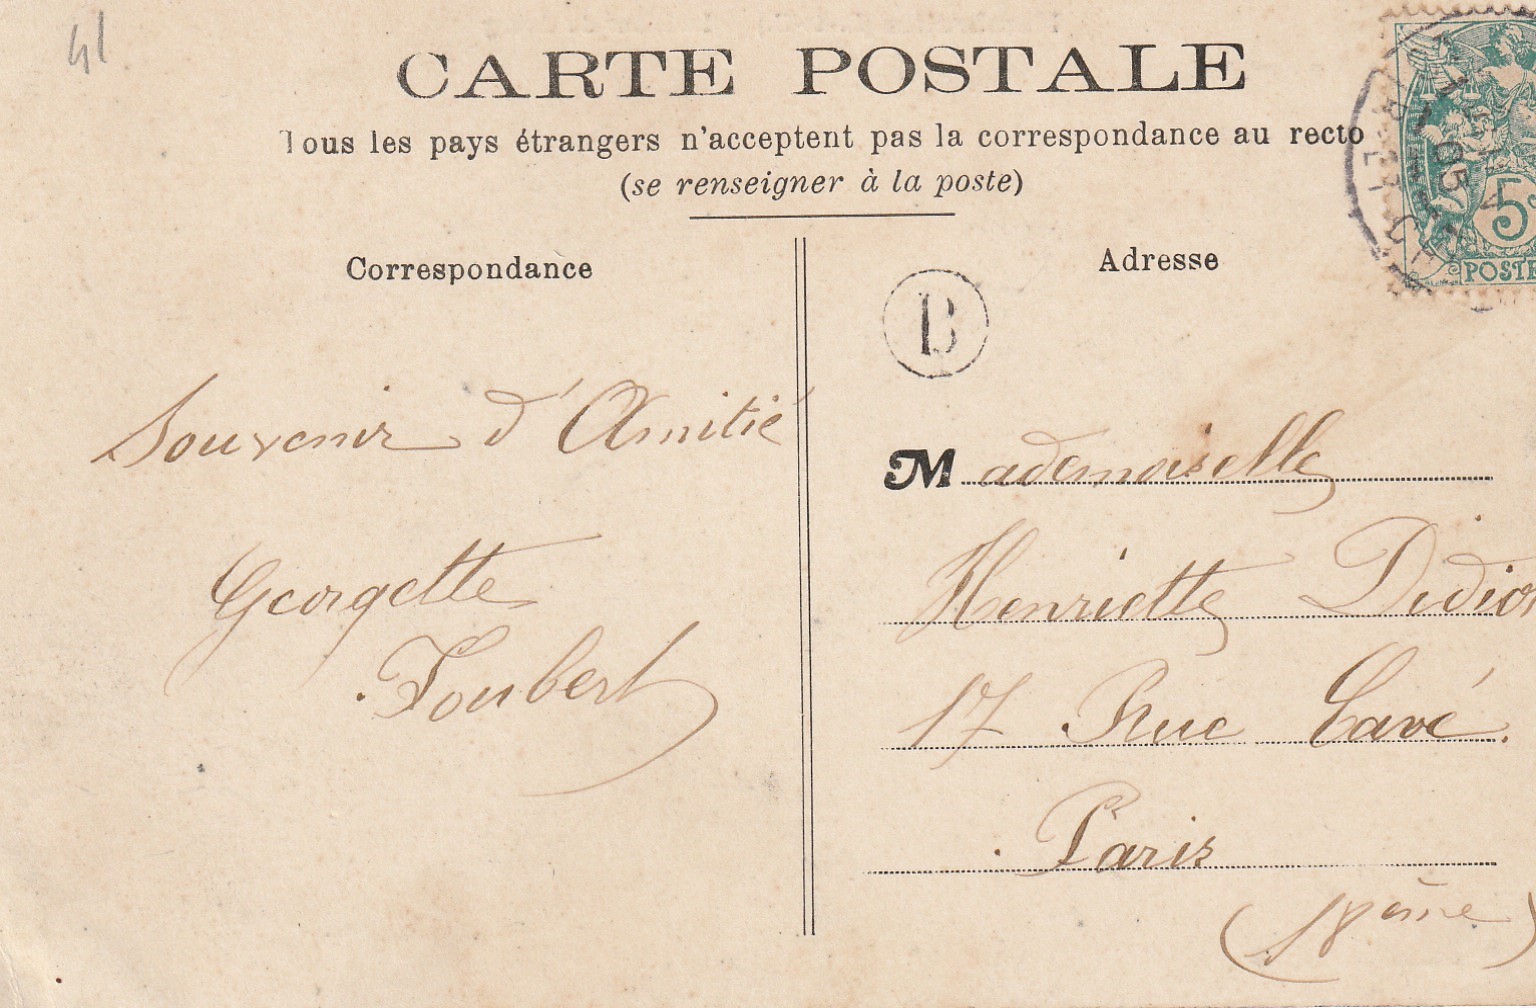 41
CARTE POSTALE
Tous les pays étrangers n'acceptent pas la correspondance au recto
(se renseigner à la poste)
Correspondance
Adresse
B
5c
POSTE
05
Souvenir d'Amitié
Georgette
Joubert
Mademoiselle
Henriette Didion
17 Rue Cavé.
Paris
(18ème)